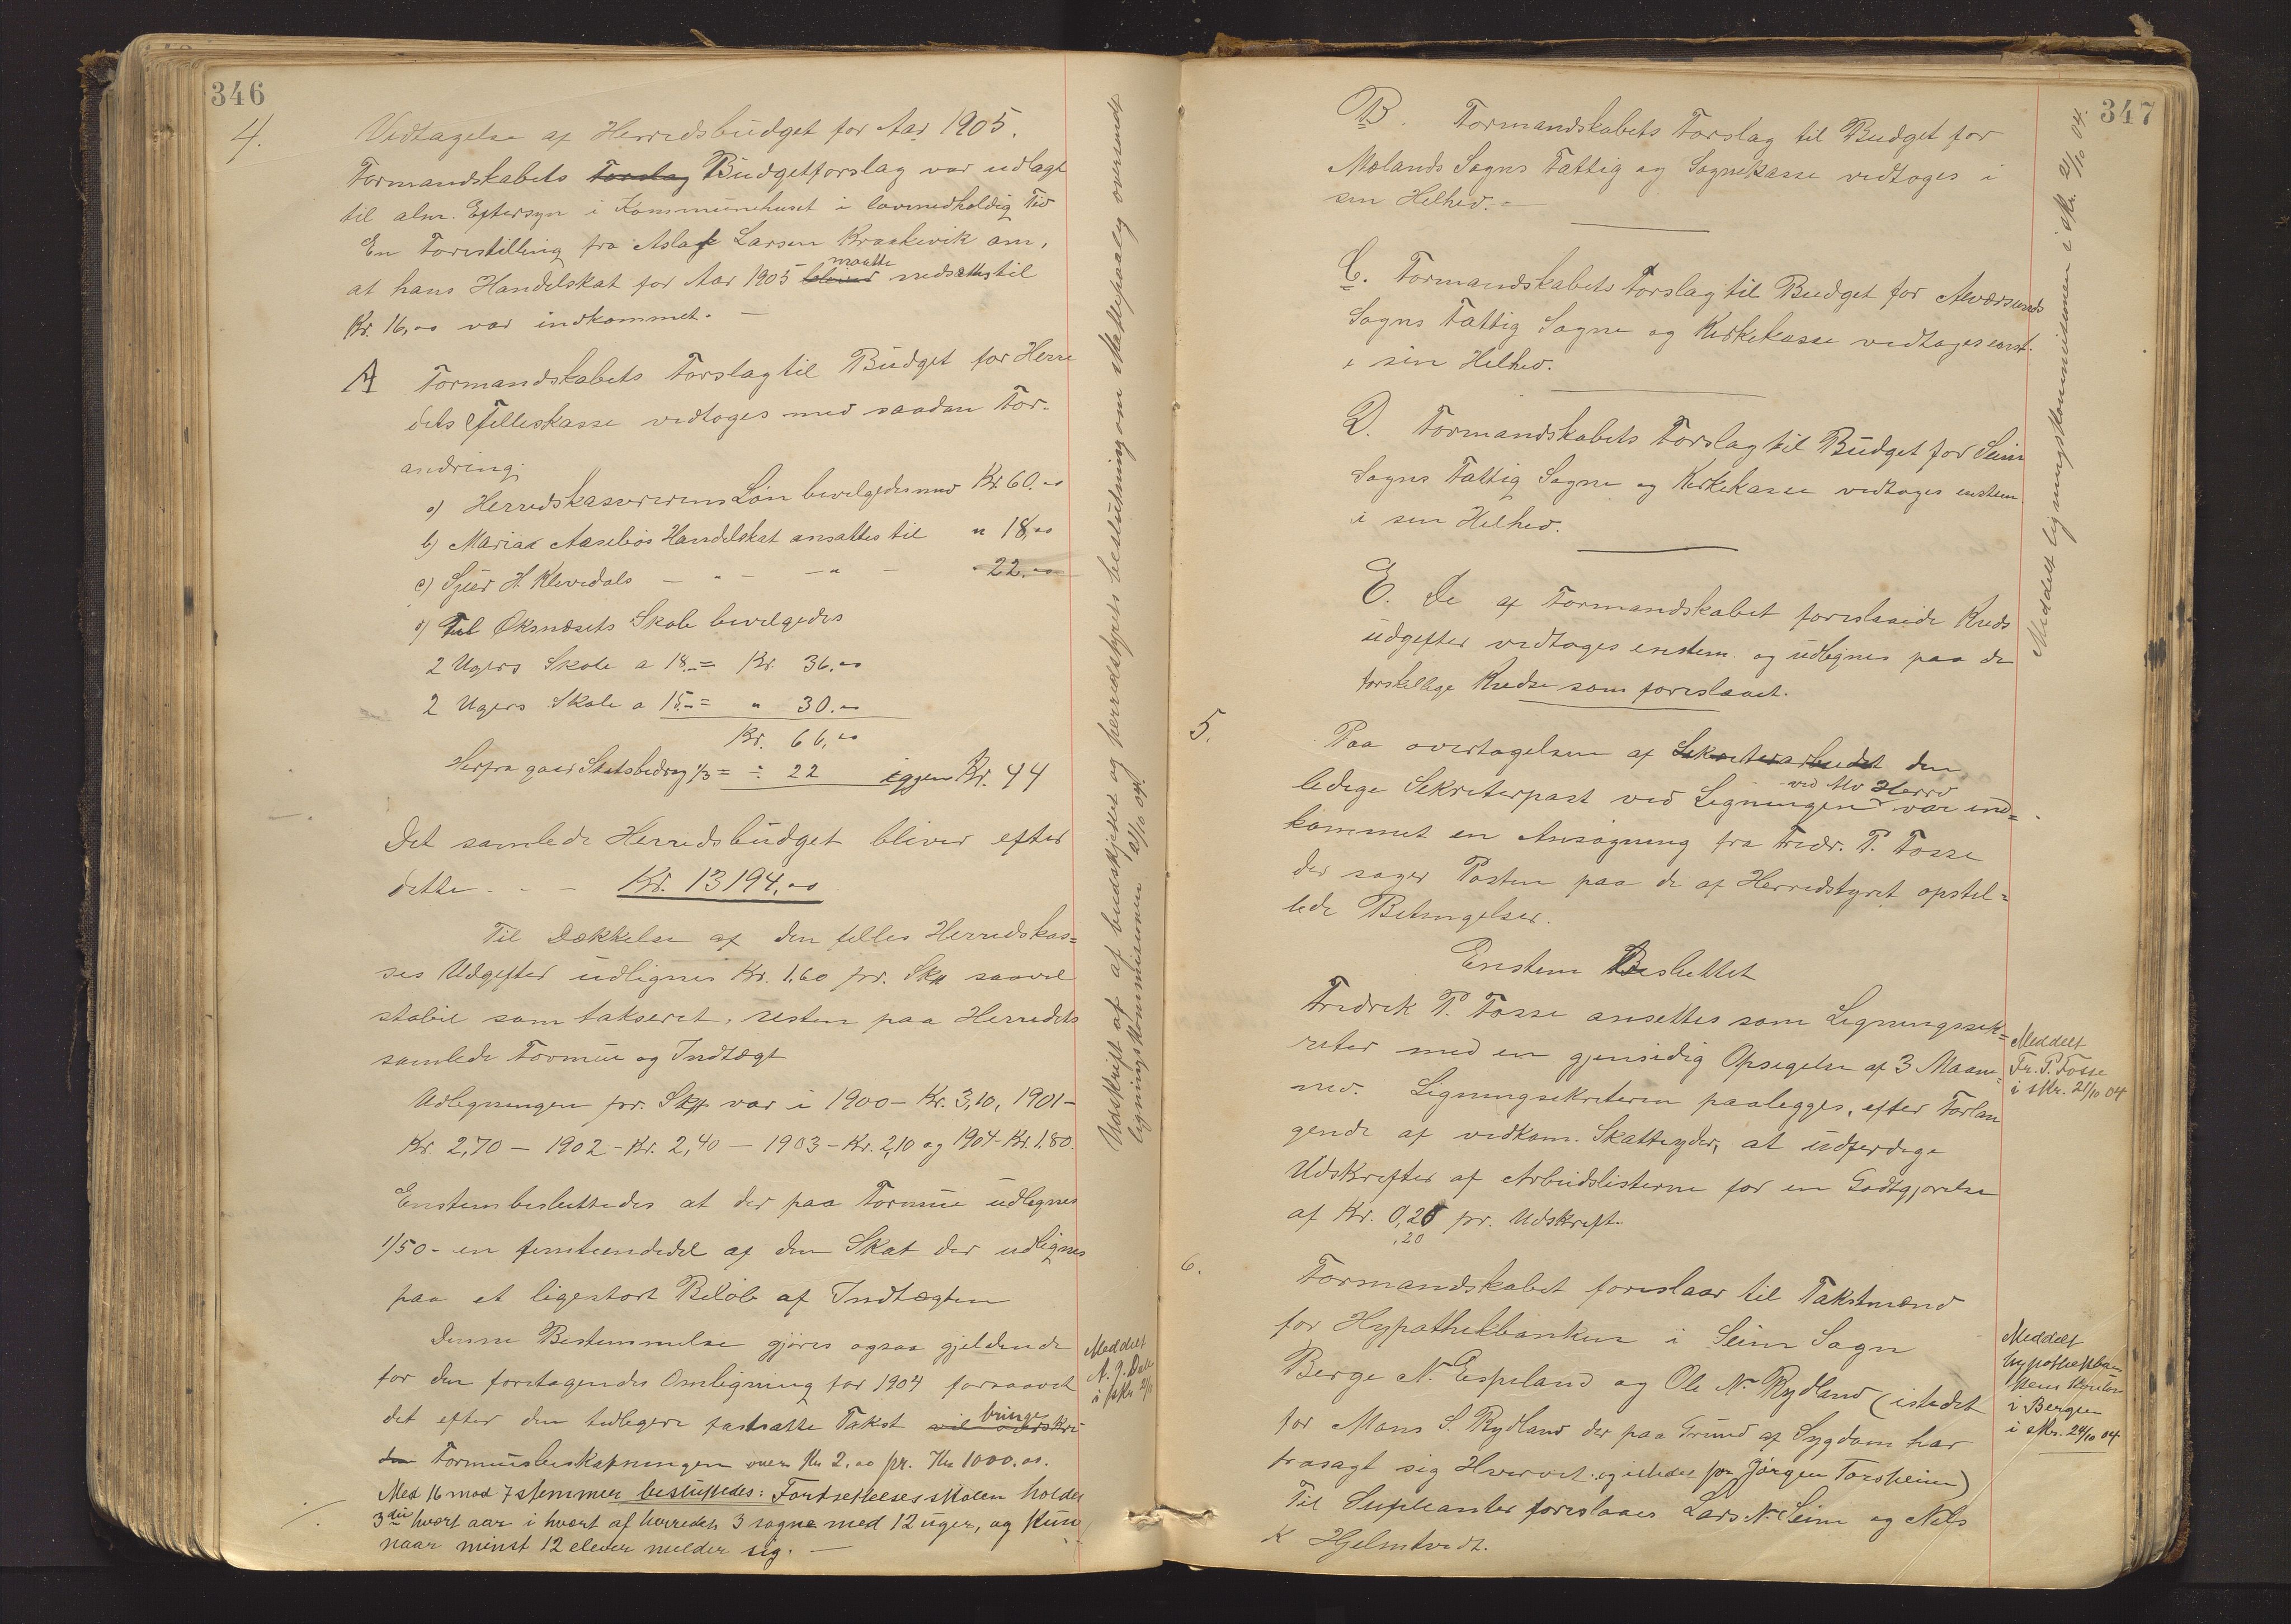 346
4. Vedtagelse af Herredsbudget for Aar 1905.
Formandskabets Forslag Budgetforslag var udlagt
til alm. Eftersyn i Kommunehuset i lovmedholdig Tid
En Forestilling fra Aslak Larsen Kraakevik om,
at hans Handelskat for Aar 1905 bliver maatte nedsættes til
Kr. 16,00 var indkommet. —
A Formandskabets Forslag til Budget for Herre
dets Felleskasse vedtoges med saadan For-
andring:
a) Herredskassererens Løn bevilgedes med Kr 60.00
b) Marias Aasebøs Handelskat ansattes til " 18,00
c) Sjur H. Klevedals — " — — " — 22.00
d) Til Oksnæsets Skole bevilgedes
2 Ugers Skole a 18.- = Kr. 36.00
2 Ugers Skole a 15.- = " 30.00
Kr. 66,00
Herfra gaar Statsbidrag 1/3 = ÷ 22 igjen Kr. 44
Det samlede Herredsbudget bliver efter
dette - - - Kr. 13194,00
Til Dækkelse af den felles Herredskas=
ses Udgifter udlignes Kr. 1.60 pr. Sk# saavel
stabil som takseret, resten paa Herredets
samlede Formue og Indtægt
Udligningen pr. Sk# var i 1900 - Kr. 3,10, 1901 -
Kr. 2,70 — 1902 - Kr. 2,40 — 1903 - Kr. 2,10 og 1904 - Kr. 1.80.
Enstem besluttedes at der paa Formue udlignes
1/50 - en femtiendedel af den Skat der udlignes
paa et ligestort Beløb af Indtægten
Denne Bestemmelse gjøres ogsaa gjeldende
for den foretagendes Omligning for 1904 forsaavidt
det efter den tidligere fastsatte Takst vil overskri bringe
den Formuesbeskatningen over Kr 2.00 pr. Kr 1000.00.
Med 16 mod 7 stemmer besluttedes: Fortsettelsesskolen holdes
3die hvert aar i hvert af herredets 3 sogne med 12 uger, og kun
naar minst 12 elever melder sig. —
Meddelt
A. J. Dale
i skr 21/10
Udskrift af af budskjettet og herredstyrets beslutning om skattepaalæg oversendt
ligningskommissionen 21/10 04.
347
B. Formandskabets Forslag til Budget for
Mælands Sogns Fattig og Sognekasse vedtoges i
sin Helhed. —
C. Formandskabets Forslag til Budget for Alværsunds
Sogns Fattig Sogne og Kirkekasse vedtoges enst.
i sin Helhed.
D. Formandskabets Forslag til Budget for Seim
Sogns Fattig Sogne og Kirkekasse vedtoges enstem
i sin Helhed.
E. De af Formandskabet foreslaaede Kreds
udgifter vedtoges enstem. og udlignes paa de
forskellige Kredse som foreslaaet.
Meddelt ligningskommissionen i skr. 21/10 04.
5. Paa overtagelsen af Sekreterarbeidet den
ledige Sekreterpost ved Ligningen var ind=
kommet en Ansøgning fra Fredr. P. Fosse
der søger Posten paa de af Herredstyret opstil=
lede Betingelser.
Enstem Besluttet
Fredrik P. Fosse ansettes som Ligningssek=
reter med en gjensidig Opsigelse af 3 Maane
ned. Ligningsekreteren paalegges, efter Forlan
gende af vedkom. Skatteyder, at udferdige
Udskrifter af Arbeidslisterne for en Godtgjørelse
af Kr. 0,20 pr. Udskrift.
,20
Meddelt
Fr. P. Fosse
i skr. 21/10 04
6. Formandskabet foreslaar til Takstmænd
for Hypothekbanken i Seim Sogn
Berge N. Espeland og Ole N. Rydland (istedet
for Mons S. Rydland der paa Grund af Sygdom har
frasagt sig Hvervet og istedet for Jørgen Torsheim)
Til Supleanter foreslaaes Lars N. Seim og Nils
K Hjelmtvedt.
Meddelt
hypothekban
kens kontor
i Bergen
i skr. 24/10 04